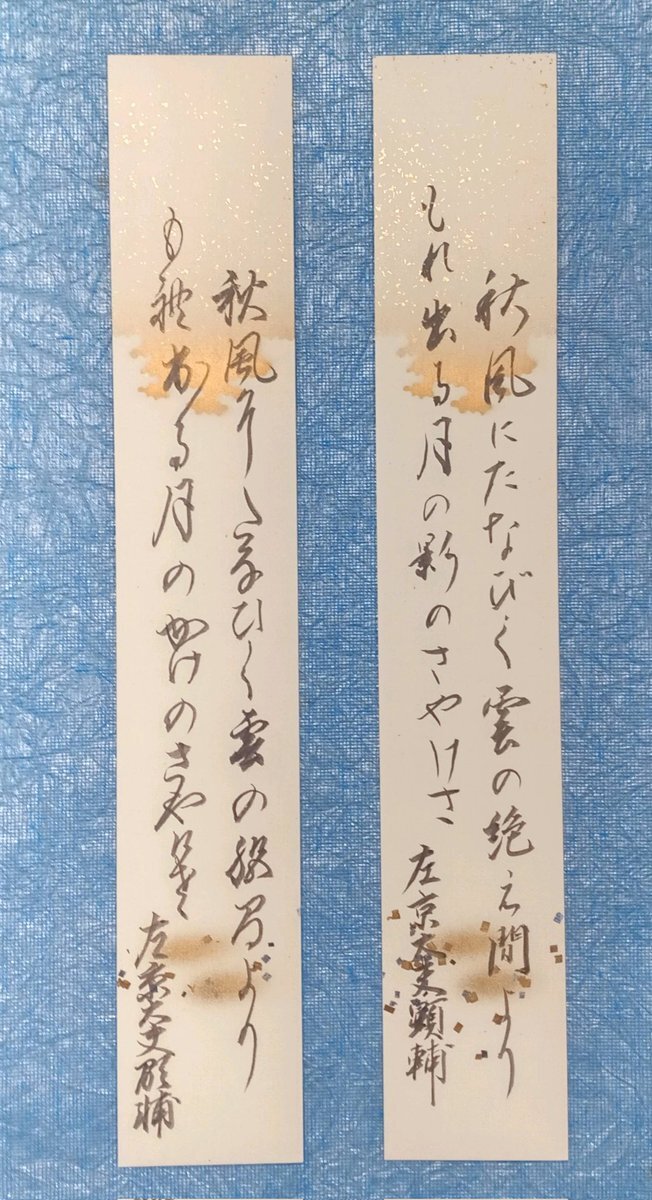 秋風にたなびく雲の絶え間より
もれ出る月の影のさやけさ
左京大夫顯輔
秋風にたなひく雲の絶間より
もれ出る月のかけのさやけさ
左京大夫顕輔